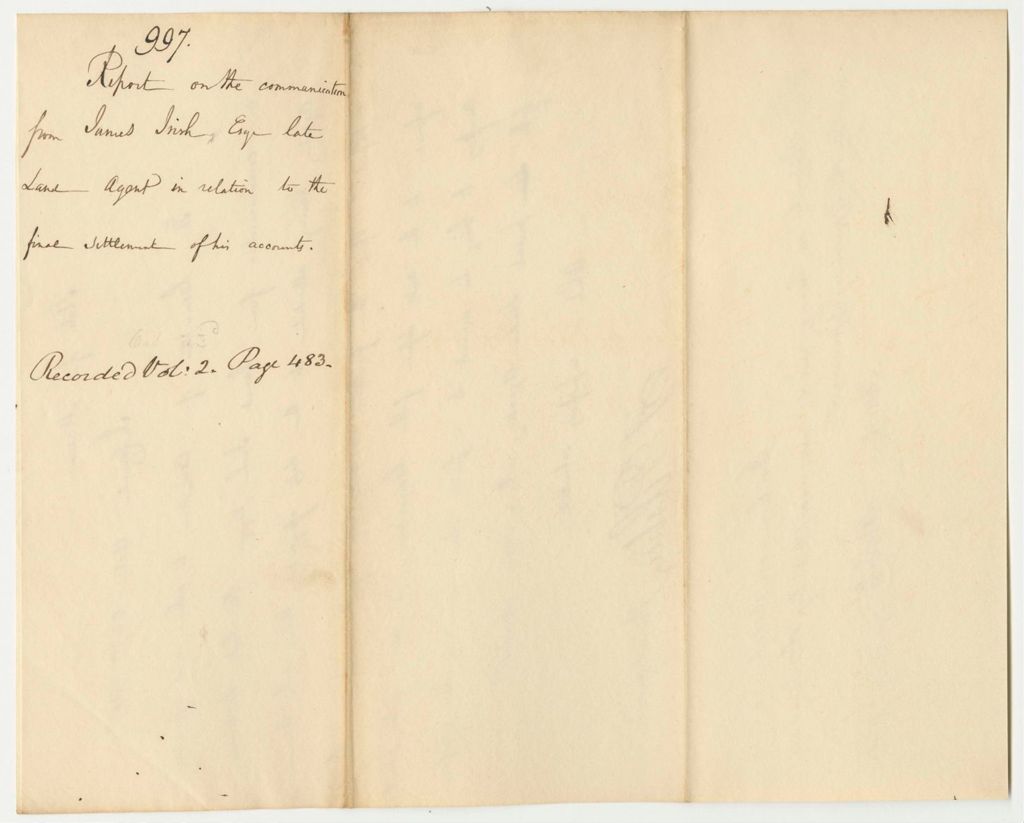 997.
Report on the communication
from James Irish, Esqr late
Land Agent in relation to the
final settlement of his accounts.
Recorded Vol: 2. Page 483.